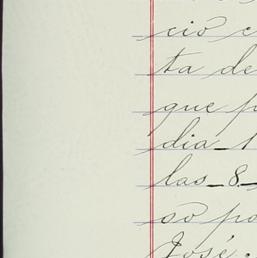 cio c
ta de
que p
dia 1
las 8
so po
José